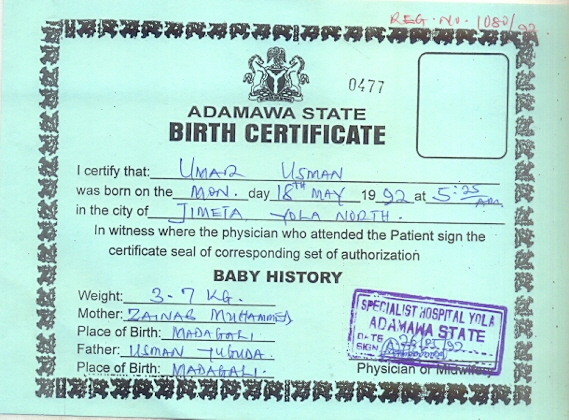 REG. NO. 1080/92
0477
ADAMAWA STATE
BIRTH CERTIFICATE
I certify that: UMAR USMAN
was born on the MON. day 18TH MAY 1992 at 5:25 AM
in the city of JIMETA YOLA NORTH.
In witness where the physician who attended the Patient sign the
certificate seal of corresponding set of authorization
BABY HISTORY
Weight: 3.7 KG.
Mother: ZAINAB MUHAMMED
Place of Birth: MADAGALI
Father: USMAN YUGUDA.
Place of Birth: MADAGALI.
SPECIALIST HOSPITAL YOLA
ADAMAWA STATE
DATE /05/92
SIGN
Physician or Midwife